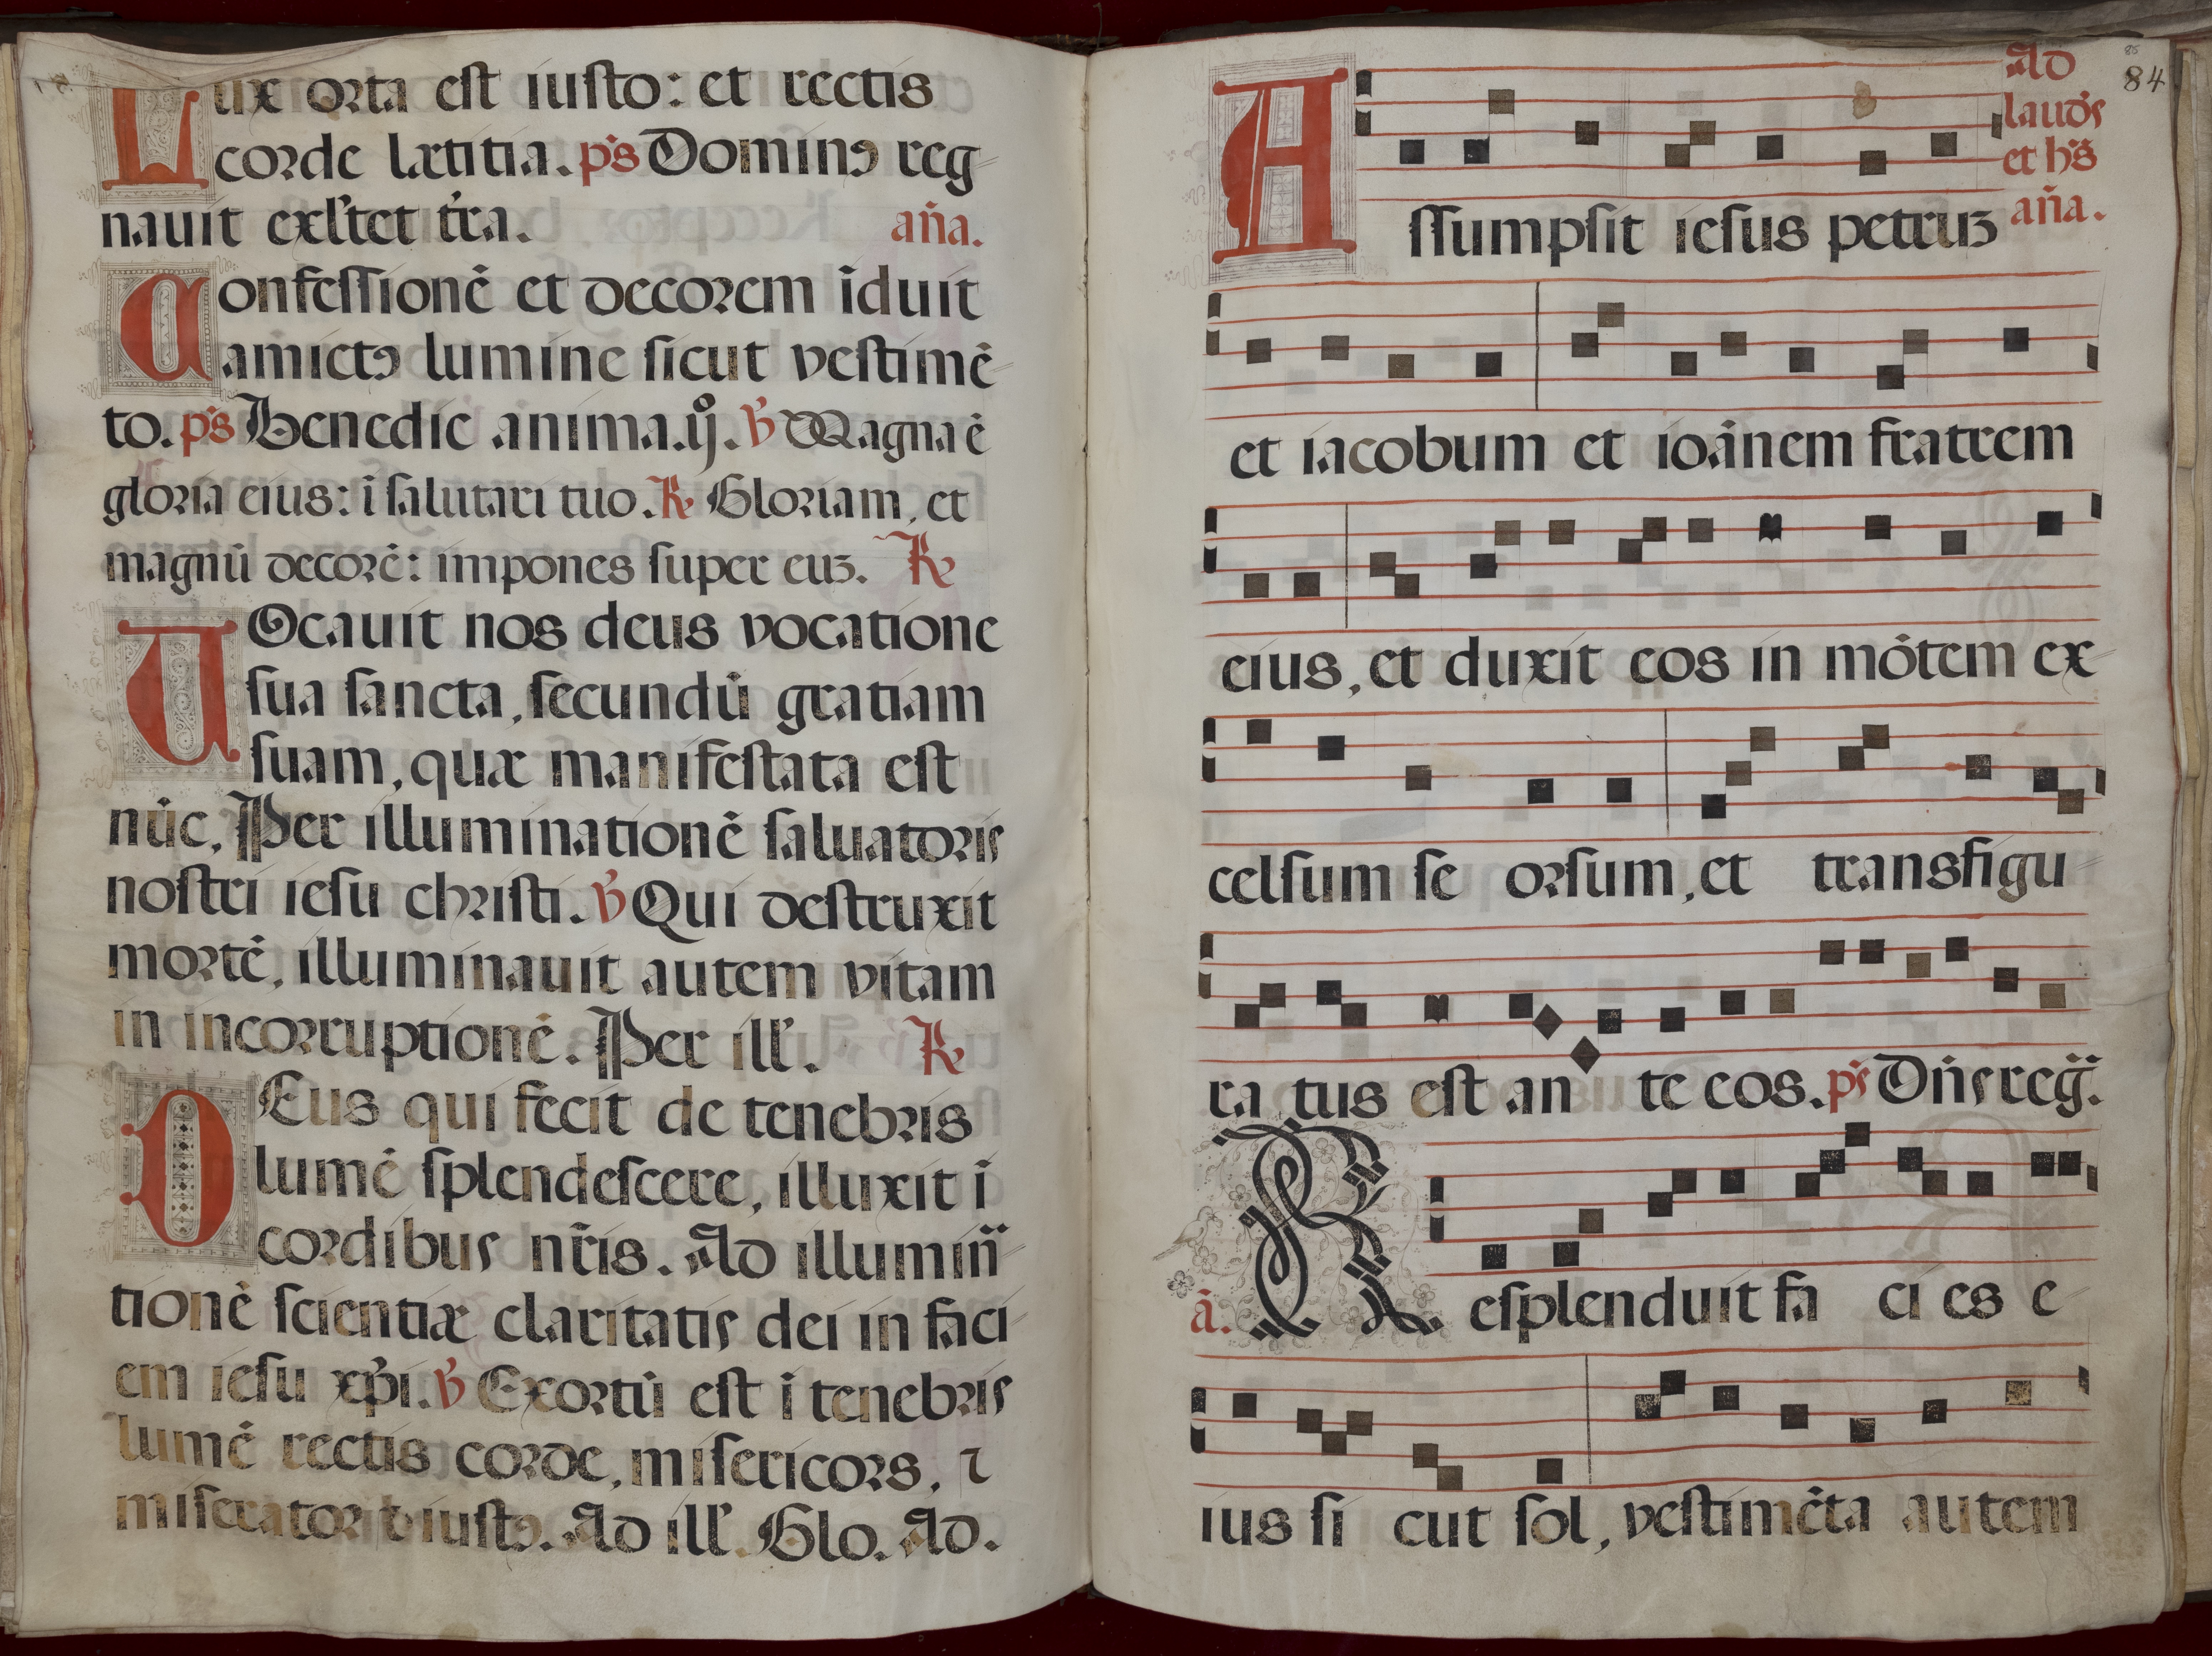 Lux orta est iusto: et rectis
corde lætitia. p̃s Dominꝰ reg
nauit exl'tet t'ra. aña.
Confessionē et decorem īduit
amictꝰ lumine sicut vestimē
to. p̃s Benedic anima. ij. ℣ Magna ē
gloria eius: ī salutari tuo. ℟ Gloriam, et
magnū decorē: impones super euꝫ. ℟
VOcauit nos deus vocatione
sua sancta, secundū gratiam
suam, quæ manifestata est
nūc. Per illuminationē saluatoris
nostri iesu christi. ℣ Qui destruxit
mortē, illuminauit autem vitam
in incorruptionē. Per ill'. ℟
DEus qui fecit de tenebris
lumē splendescere, illuxit ī
cordibus nr̄is. Ad illumin̄
tionē scientiæ claritatis dei in faci
em iesu xp̄i. ℣ Exortū est ī tenebris
lumē rectis corde, misericors, ⁊
miserator ⁊ iustꝰ. Ad ill'. Glo. Ad.
84
Ad
laud's
et h's
aña.
Assumpsit iesus petruꝫ
et iacobum et ioānem fratrem
eius, et duxit eos in mōtem ex
celsum se orsum, et transfigu
ra tus est an te eos. p̃s Dñs reg̃.
ā. Resplenduit fa ci es e
ius si cut sol, vestimēta autem